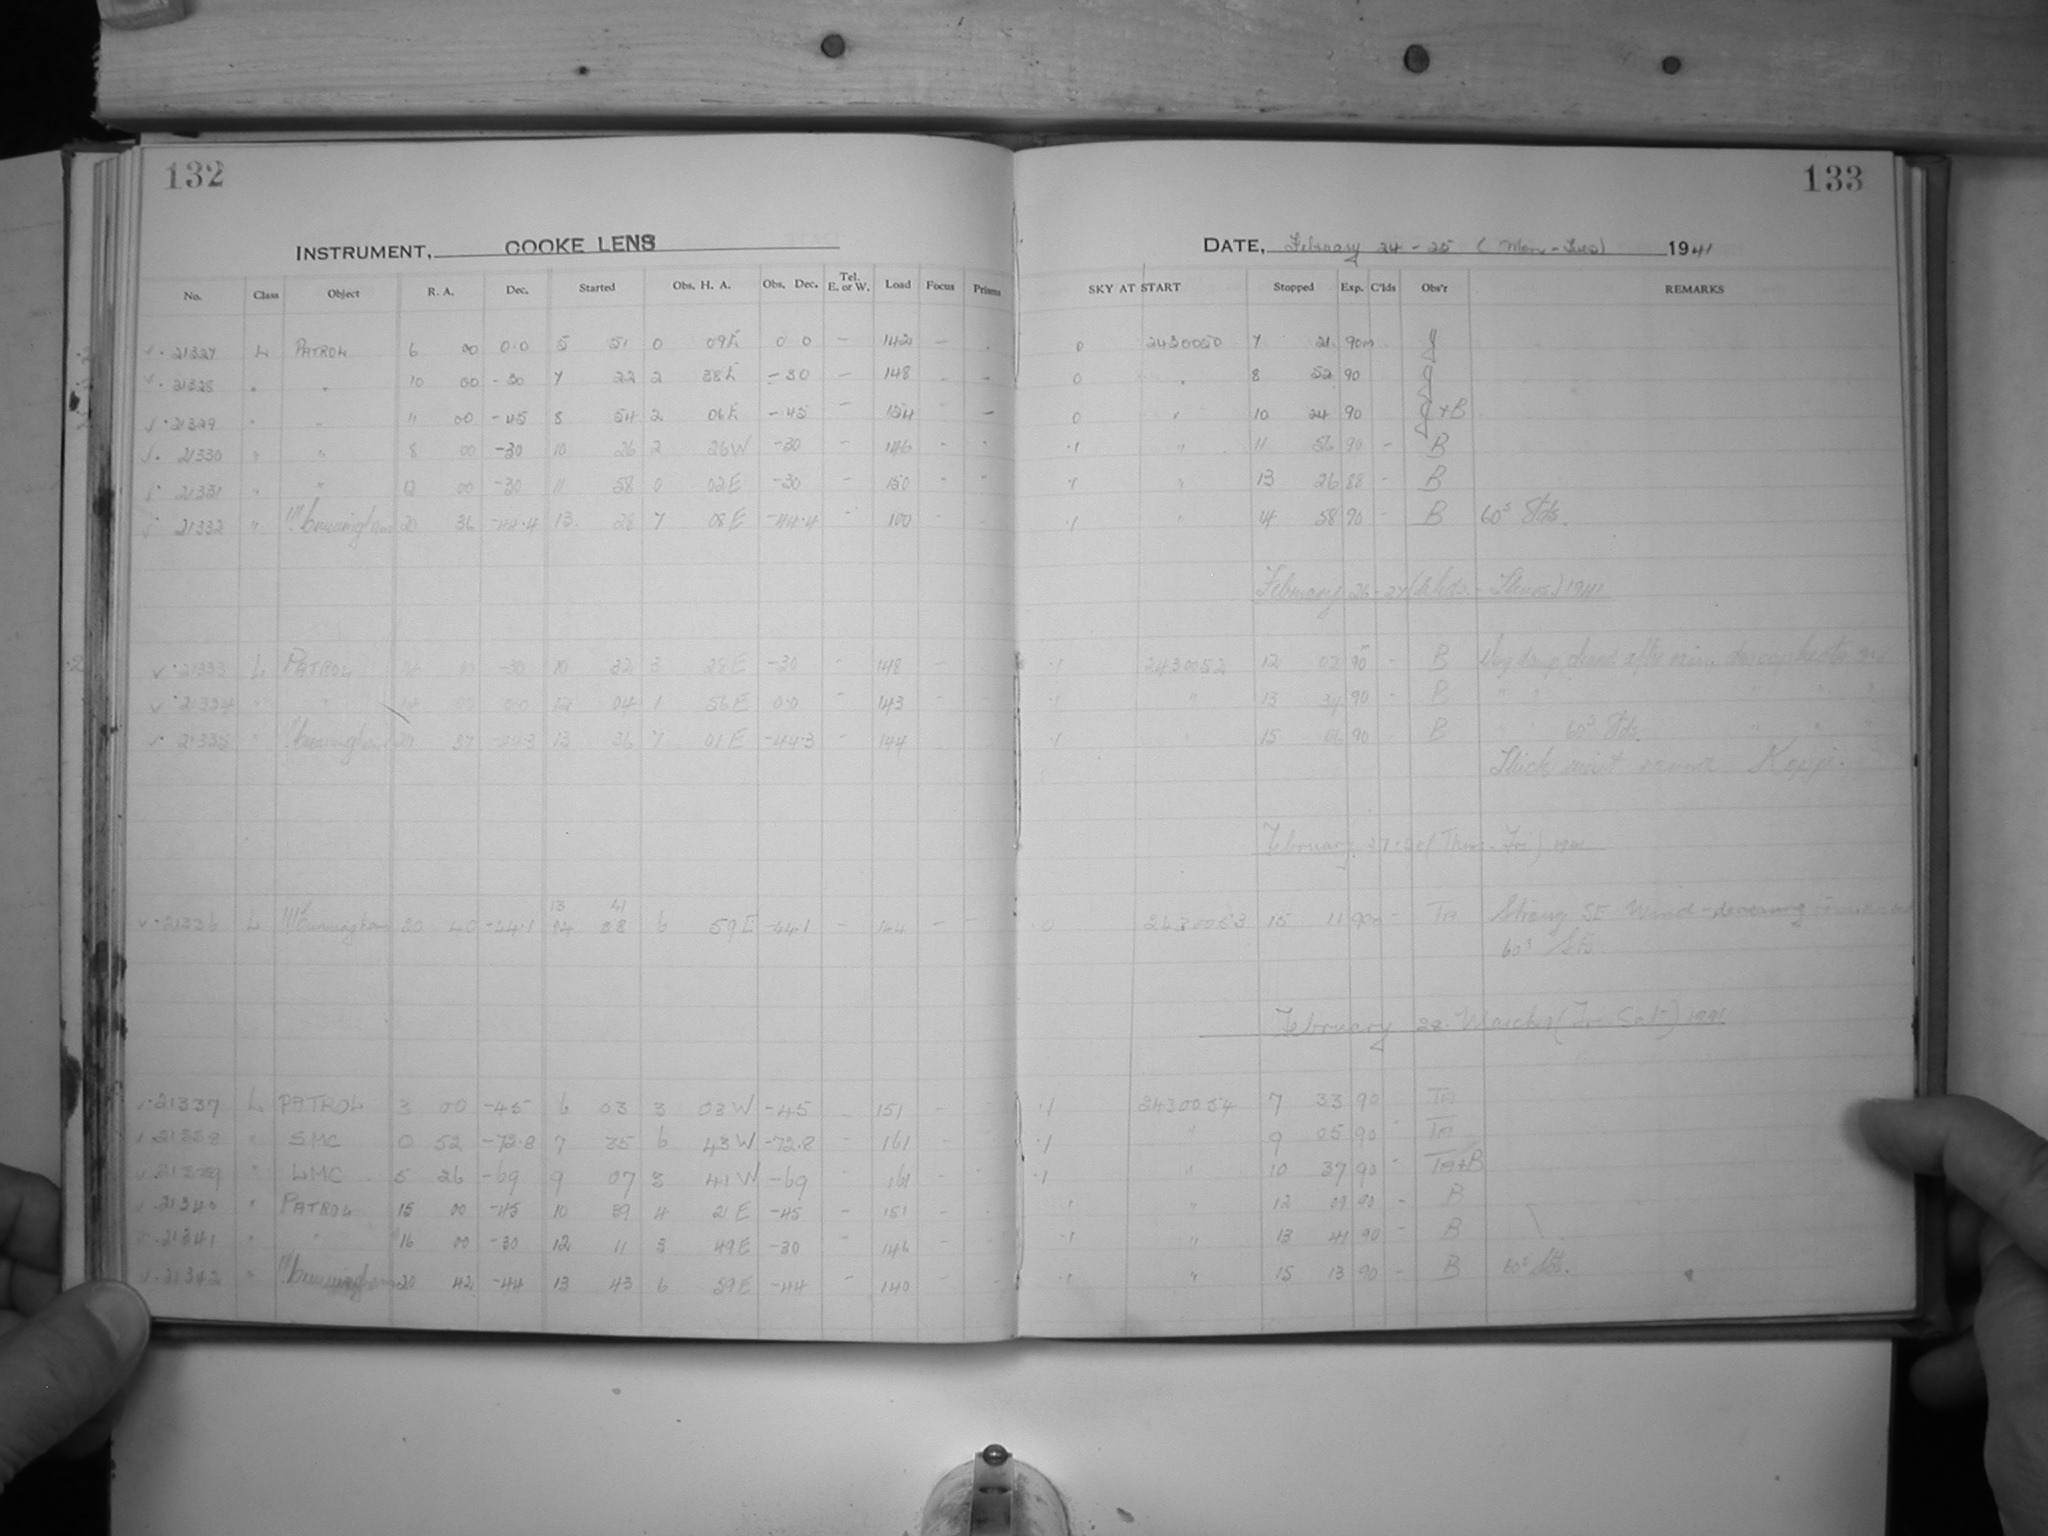 132
133
INSTRUMENT, COOKE LENS
DATE, February 24 - 25 (Mon - Tues) 1941
No. Class Object R. A. Dec. Started Obs. H. A. Obs. Dec. Tel. E. or W. Load Focus Prisms SKY AT START Stopped Exp. C'lds Obs'r REMARKS
21327 L PATROL 6 00 0.0 5 51 0 09E 0 0 - 142 - 0 2430050 7 21 90m J
21328 " " 10 00 -30 7 22 2 38E -30 - 148 - - 0 " 8 52 90 J
21329 " " " 00 -45 8 54 2 06E -45 - 154 - - 0 " 10 24 90 J+B
21330 " " 8 00 -30 10 26 2 26W -30 - 146 - - .1 " 11 56 90 - B
21331 " " 12 00 -30 11 58 0 02E -30 - 150 - - " 13 26 88 - B
21332 " !!! Cunningham 20 36 -44.4 13 28 7 08E -44.4 - 100 - .1 " 14 58 90 - B 60s Stds.
February 26-27 (Weds. - Thurs) 1941
21333 L PATROL 00 -30 10 32 3 28E -30 - 148 - .1 2430052 12 02 90m - B after rain,
21334 " " 14 00 0.0 12 04 1 56E 0.0 - 143 - .1 " 13 34 90 - B " " " " "
21335 " !! Cunningham 37 -44.3 13 36 7 01E -44.3 - 144 .1 " 15 06 90 - B " " 60s Stds. " " "
Thick mist round Kopje.
February 27-28 (Thurs - Fri) 1941
13 41
21336 L !!! Cunningham 20 40 -44.1 6 59E -44.1 - 144 - 0 2430053 15 11 90m - TM Strong SE Wind
60s Stds.
February 28 - March 1 (Fri - Sat) 1941
21337 L PATROL 3 00 -45 6 03 3 03W -45 - 151 - .1 2430054 7 33 90 TM
21338 " SMC 0 52 -72.8 7 35 6 43W -72.8 - 161 - .1 " 9 05 90 - TM
21339 " LMC 5 26 -69 9 07 3 41W -69 161 - .1 " 10 37 90 - TM+B
21340 " PATROL 15 00 -45 10 39 4 21E -45 - 151 - .1 " 12 09 90 - B
21341 " " 16 00 -30 12 11 3 49E -30 - 146 - .1 " 13 41 90 - B
21342 " !!! Cunningham 20 42 -44 13 43 6 59E -44 - 140 - .1 " 15 13 90 - B 60s Stds.